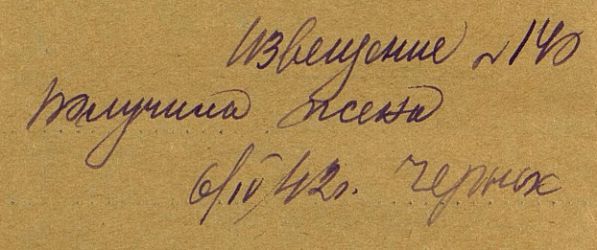 Извещение №140
Получила жена
6/IV 42г. Черных